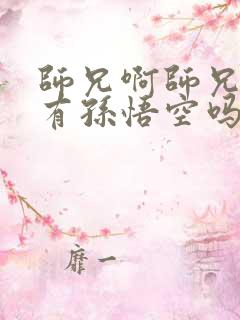 師兄啊師兄
有孫悟空吗
靡一